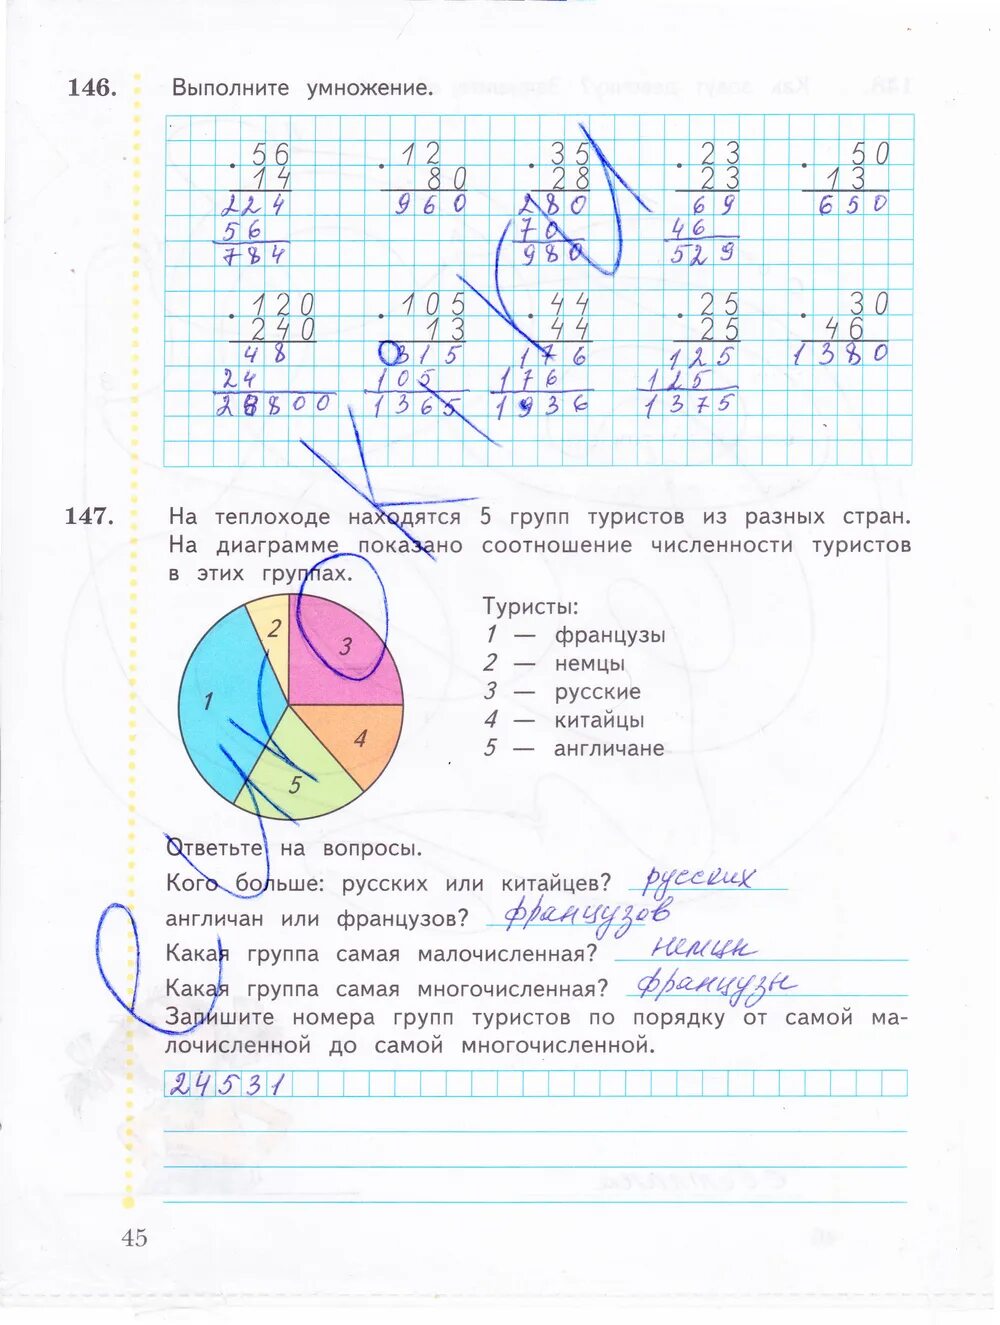 146. Выполните умножение.
56 12 35 23 50
14 80 28 23 13
224 960 280 69 650
56 70 46
784 980 529
120 105 44 25 30
240 13 44 25 46
48 0315 176 125 1380
24 105 176 125
28800 1365 1936 1375
147. На теплоходе находятся 5 групп туристов из разных стран.
На диаграмме показано соотношение численности туристов
в этих группах.
Туристы:
1 — французы
2 — немцы
3 — русские
4 — китайцы
5 — англичане
2
3
1
4
5
Ответьте на вопросы.
Кого больше: русских или китайцев? русских
англичан или французов? французов
Какая группа самая малочисленная? немцы
Какая группа самая многочисленная? французы
Запишите номера групп туристов по порядку от самой ма-
лочисленной до самой многочисленной.
24531
45